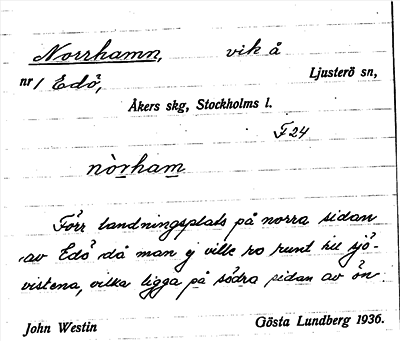 Norrhamn, vik å
nr 1 Edö, Ljusterö sn,
Åkers skg, Stockholms l.
F24
nòrham
Förr landningsplats på norra sidan
av Edö då man ej ville ro runt till sjö-
vistena, vilka ligga på södra sidan av ön.
John Westin Gösta Lundberg 1936.